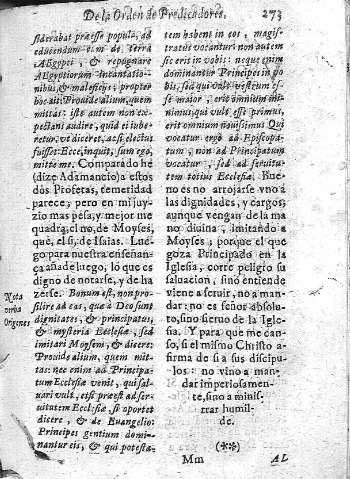 De la Orden de Predicadores. 273
siderabat præesse populo, ad
educendum eum de terra
AEgypti, & repugnare
AEgyptiorum incantatio-
nibus, & maleficijs; propter
hoc ait: Provide alium, quem
mittas: iste autem non ex-
pectans audire, quid ei iube-
retur, vt diceret, ac si electus
fuisset: Ecce, inquit, sum ego,
mitte me. Comparado hè
(dize Adamancio) a estos
dos Profetas, temeridad
parece; pero en mi juy-
zio mas pesa, y mejor me
quadra, el no, de Moyses,
què, el si, de Isaias. Lue-
go para nuestra enseñan-
ça añade luego, lo que es
digno de notarse, y de ha
zerse. Bonum est, non pro-
silire ad eas, quæ à Deo sunt
dignitates, & principatus,
& mysteria Ecclesiæ, sed
imitari Moysem, & dicere:
Provide alium, quem mit-
tas: nec enim ad Principa-
tum Ecclesiæ venit, qui sal-
uari vult, etsi præest ad ser-
uitutem Ecclesiæ, si oportet
dicere, & de Euangelio:
Principes gentium domi-
nantur eis, & qui potesta-
Nota
verba
Origenes
tem habent in eos, magis-
tratus vocantur: non autem
sic erit in vobis: neque enim
dominantur Principes in po
bis, sed qui vult vestrum es-
se maior, erit omnium mi-
nimus, qui vult esse primus,
erit omnium nouissimus Qui
vocatur ergo ad Episcopa-
tum, non ad Principatum
vocatur, sed ad seruitu-
tem totius Ecclesiæ. Bue-
no es no arrojarse vno a
las dignidades, y cargos;
aunque vengan de la ma
no diuina, imitando a
Moyses; porque el que
goza Principado en la
Iglesia, corre peligro su
saluacion, sino entiende
viene a seruir, no a man-
dar: no es señor absolu-
to, sino sieruo de la Igle-
sia. Y para que me can-
so, si el mismo Christo a-
firma de si a sus discipu-
los: no vino a man-
dar imperiosamen-
te, sino a minis-
trar humil-
de.
(**)
Mm AL